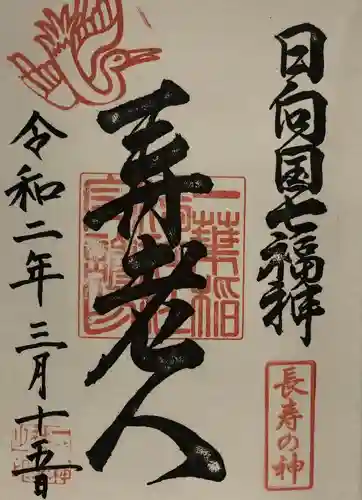 日向国七福神
長寿の神
寿老人
令和二年三月十五日